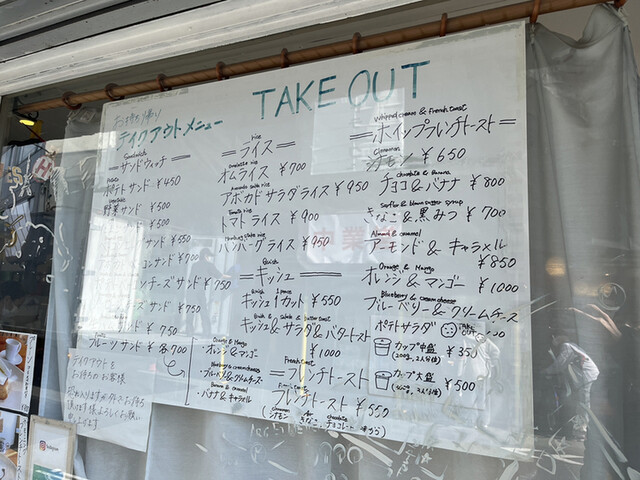 TAKE OUT
お持ち帰り
テイクアウト・メニュー
Sandwich
＝サンドウィッチ＝
Potato
ポテトサンド ¥450
Vegetable
野菜サンド ¥500
サンド ¥500
サンド ¥550
コンサンド ¥700
ンチーズサンド ¥750
ズサンド ¥750
ド ¥750
フルーツサンド ¥各700
Orange & Mango
・オレンジ&マンゴー
Blueberry & cream cheese
・ブルーベリー&クリームチーズ
Banana & caramel
・バナナ&キャラメル
rice
＝ライス＝
Omelette rice
オムライス ¥700
Avocado salad rice
アボカドサラダライス ¥950
Tomato rice
トマトライス ¥900
Hamburg steak rice
ハンバーグライス ¥950
Quish
＝キッシュ＝
Quish 1 piece
キッシュ1カット ¥550
Quish & Salad & butter toast
キッシュ&サラダ&バタートースト
¥1000
French toast
＝フレンチトースト＝
フレンチトースト ¥550
Cinnamon
chocolate
(シナモン きなこ チョコレート
Whipped cream & French toast
＝ホイップフレンチトースト＝
Cinnamon
シナモン ¥650
chocolate & Banana
チョコ&バナナ ¥800
きなこ&黒みつ ¥700
Almond & caramel
アーモンド&キャラメル
¥850
Orange & Mango
オレンジ&マンゴー ¥1000
Blueberry & cream cheese
ブルーベリー&クリームチーズ
ポテトサラダ
カップ中盛 ¥350
カップ大盛 ¥500
テイクアウトを
お待ちのお客様